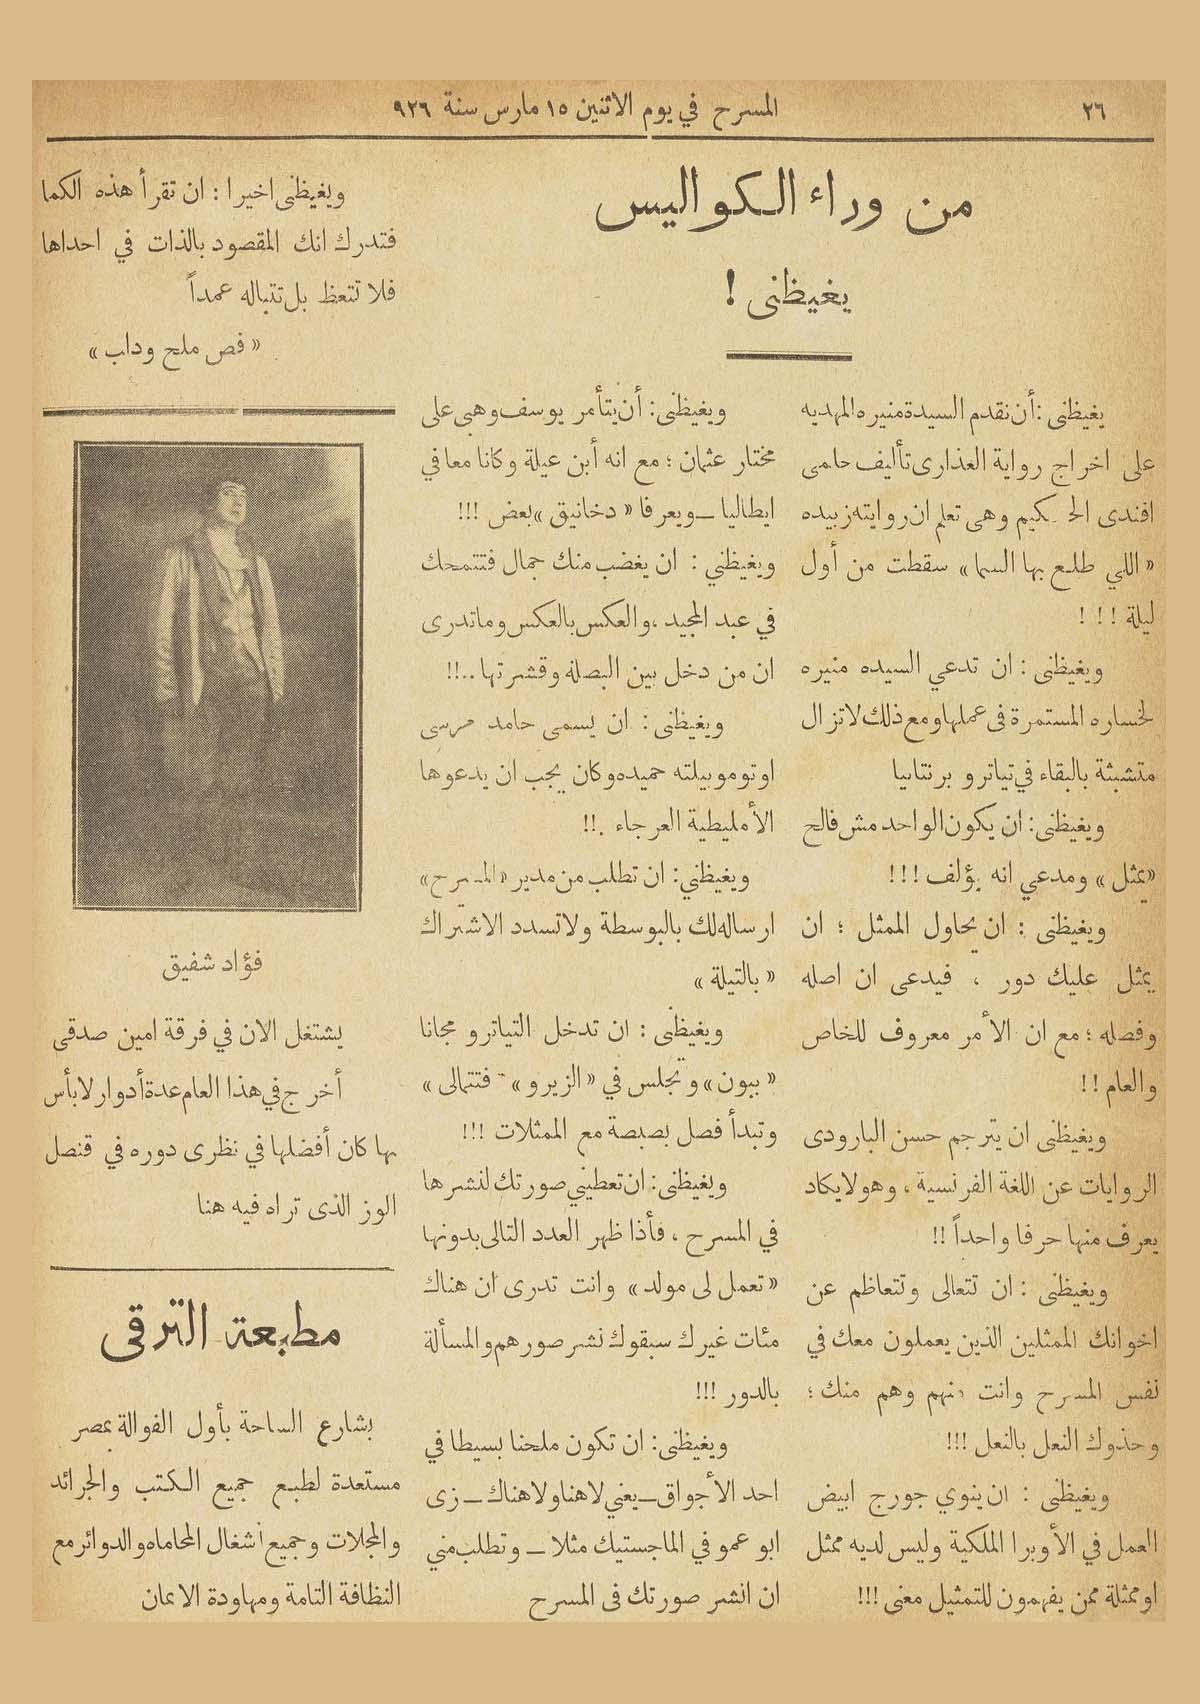 ٢٦
المسرح في يوم الاثنين ١٥ مارس سنة ٩٢٦
من وراء الكواليس
يغيظنى !
يغيظنى : أن نقدم السيدة منيره المهديه
على اخراج رواية العذارى تأليف حامى
افندى الحكيم وهى تعلم ان روايته زبيده
« اللي طلع بها السما » سقطت من أول
ليلة ! ! !
ويغيظنى : ان تدعي السيده منيره
لخساره المستمرة فى عملها ومع ذلك لاتزال
متشبثة بالبقاء في تياترو برنتانيا
ويغيظنى : ان يكون الواحد مش فالح
« يمثل » ومدعي انه يؤلف ! ! !
ويغيظنى : ان يحاول الممثل ؛ ان
يمثل عليك دور ، فيدعى ان اصله
وفصله ؛ مع ان الأمر معروف للخاص
والعام ! !
ويغيظنى ان يترجم حسن البارودى
الروايات عن اللغة الفرنسية ، وهو لايكاد
يعرف منها حرفا واحداً !!
ويغيظنى : ان تتعالى وتتعاظم عن
اخوانك الممثلين الذين يعملون معك في
نفس المسرح وانت منهم وهم منك ؛
وحذوك النعل بالنعل !!!
ويغيظنى : ان ينوي جورج ابيض
العمل في الأوبرا الملكية وليس لديه ممثل
او ممثلة ممن يفهمون للتمثيل معنى !!!
ويغيظنى : أن يتأمر يوسف وهبى على
مختار عثمان ؛ مع انه أبن عيلة وكانا معا في
ايطاليا ــ ويعرفا « دخانيق » بعض !!!
ويغيظني : ان يغضب منك جمال فتتمحك
في عبد المجيد ، والعكس بالعكس وماتدرى
ان من دخل بين البصله وقشرتها ..!!
ويغيظنى : ان يسمى حامد مرسى
اوتوموبيلته حميده وكان يجب ان يدعوها
الأمليطية العرجاء .!!
ويغيظني : ان تطلب من مدير « المسرح »
ارساله لك بالبوسطة ولاتسدد الاشتراك
« بالتيلة »
ويغيظنى : ان تدخل التياترو مجانا
« ببون » وتجلس في « الزيرو » فتتمالى »
وتبدأ فصل بصبصة مع الممثلات !!!
ويغيظنى : ان تعطيني صورتك لنشرها
في المسرح ، فأذا ظهر العدد التالى بدونها
« تعمل لى مولد » وانت تدرى ان هناك
مئات غيرك سبقوك نشر صورهم والمسألة
بالدور !!!
ويغيظنى : ان تكون ملحنا بسيطا في
احد الأجواق ــ يعني لاهنا ولا هناك ــ زى
ابو عمو في الماجستيك مثلا ــ وتطلب مني
ان انشر صورتك فى المسرح
ويغيظنى اخيرا : ان تقرأ هذه الكما
فتدرك انك المقصود بالذات في احداها
فلا تتعظ بل تتباله عمداً
« فص ملح وداب »
فؤاد شفيق
يشتغل الان في فرقة امين صدقى
أخرج في هذا العام عدة أدوار لابأس
بها كان أفضلها في نظرى دوره في قنصل
الوز الذى تراه فيه هنا
مطبعة الترقى
بشارع الساحة بأول الفوالة بمصر
مستعدة لطبع جميع الكتب والجرائد
والمجلات وجميع أشغال المحاماه والدوائر مع
النظافة التامة ومهاودة الاثمان